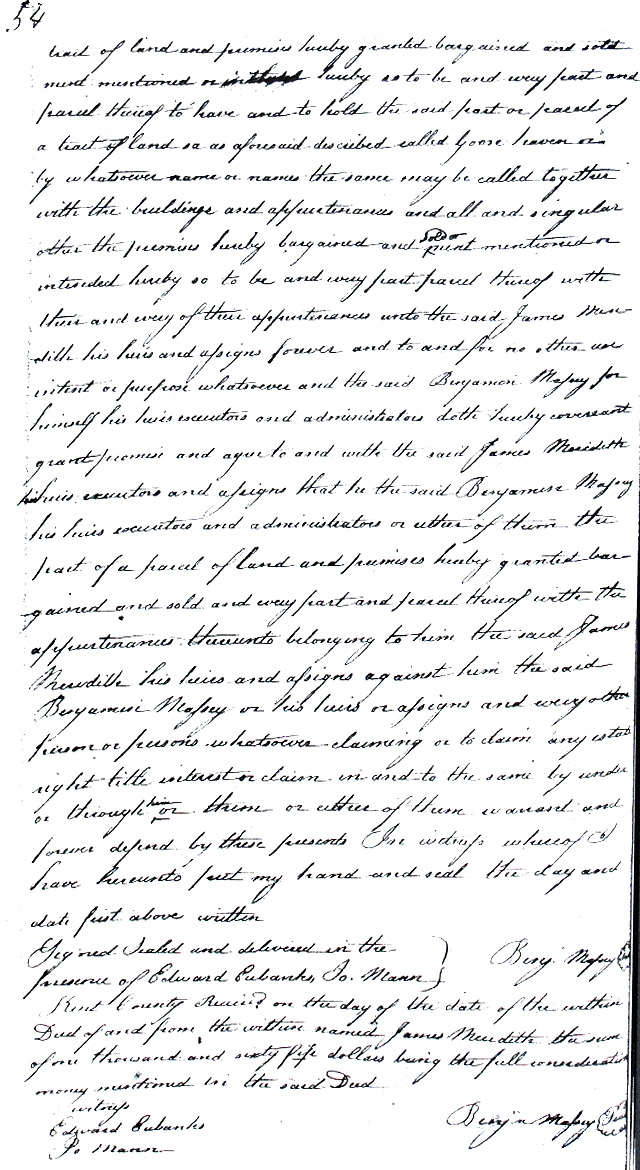 54
tract of land and premises hereby granted bargained and sold
ment mentioned or hereby so to be and every part and
parcel thereof to have and to hold the said part or parcel of
a tract of land sa as aforesaid discribed called Goose haven or
by whatsoever name or names the same may be called together
with the buildings and appurtenances and all and singular
other the premises hereby bargained and sold or ment mentioned or
intended hereby so to be and every part parcel thereof with
their and every of their appurtenances unto the said James Mere-
dith his heirs and assigns forever and to and for no other use
intent or purpose whatsoever and the said Benjamin Massey for
himself his heirs executors and administrators doth hereby covenant
grant promise and agree to and with the said James Meredith
his heirs executors and assigns that he the said Benjamin Massey
his heirs executors and administrators or either of them the
part of a parcel of land and premises hereby granted bar-
gained and sold and every part and parcel thereof with the
appurtenances thereunto belonging to him the said James
Meredith his heirs and assigns against him the said
Benjamin Massey or his heirs or assigns and every other
person or persons whatsoever claiming or to claim any estate
right title interest or claim in and to the same by under
or through him or them or either of them warrant and
forever defend by these presents In witness whereof I
have hereunto put my hand and seal the day and
date first above written
Signed Sealed and delivered in the
presence of Edward Eubanks, Jo. Mann } Benj. Massey
Kent County Receivd on the day of the date of the within
Deed of and from the within named James Meredith the sum
of one thousand and sixty five dollars being the full consideration
money mentioned in the said Deed
witness
Edward Eubanks Benj'n Massey
Jo Mann